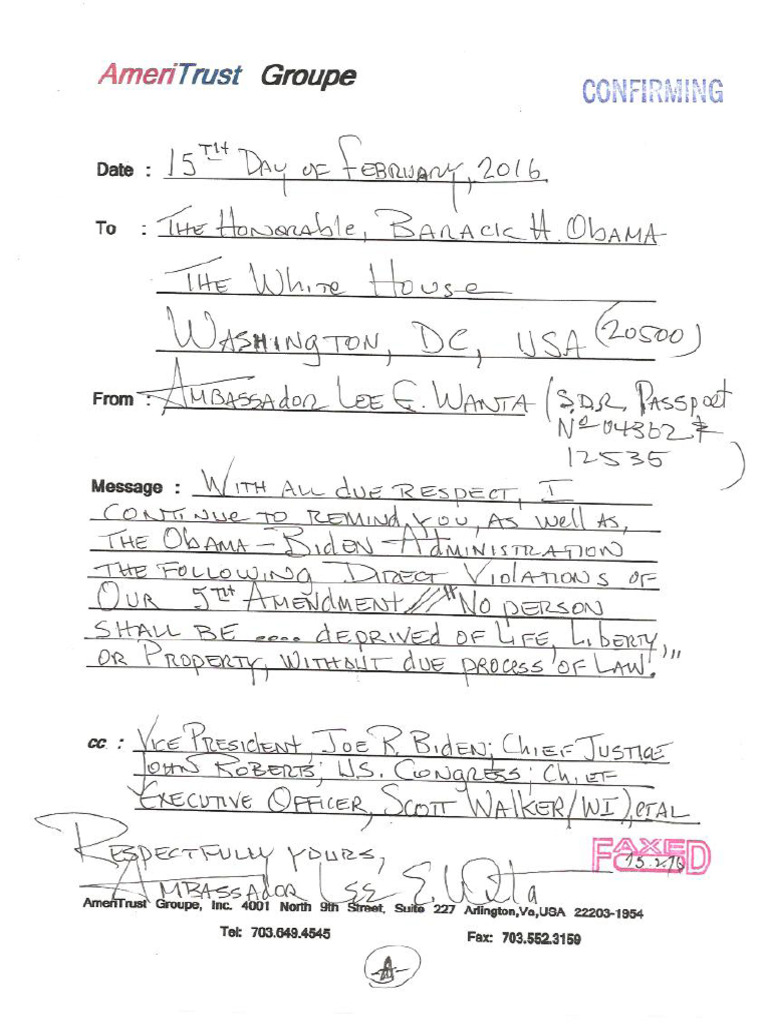 AmeriTrust Groupe
CONFIRMING
Date : 15TH DAY OF FEBRUARY, 2016
To : THE HONORAble, BARACK H. ObAMA
THE White House
WASHINGTON, DC, USA (20500)
From : AMBASSAdOR LEE E. WANTA (S.D.R. PASSPORT
Nº 04362 &
12535)
Message : WITH ALL dUE RESPECT, I
CONTINUE TO REMIND YOU, AS well AS,
THE ObAMA-BIDEN AdMINISTRATION
THE FOLLOWING DIRECT VIOLATIONS OF
OUR 5TH AMENDMENT // "NO PERSON
SHALL BE .... dEPRIVEd OF LIFE, LIBERTY,
OR PROPERTY, WITHOUT due PROCESS OF LAW."
cc : VICE PRESIDENT, JOE R. BIDEN; CHIEF JUSTICE
JOHN ROBERTS; U.S. CONGRESS; CHIEF
EXECUTIVE OFFICER, SCOTT WALKER/WI), ETAL
RESPECTFULLY YOURS,
FAXED
15.2.16
AMBASSAdOR LEE E. WANTA
AmeriTrust Groupe, Inc. 4001 North 9th Street, Suite 227 Arlington,Va,USA 22203-1954
Tel: 703.649.4545 Fax: 703.552.3159